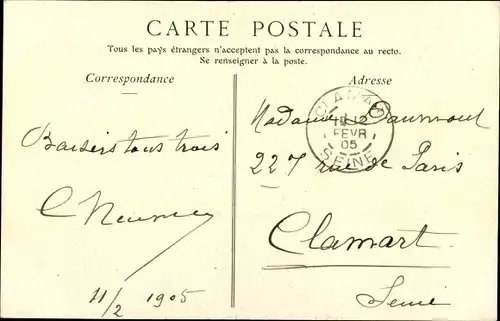 CARTE POSTALE
Tous les pays étrangers n'acceptent pas la correspondance au recto.
Se renseigner à la poste.
Correspondance
Adresse
Baisers tous trois
11/2 1905
CLAMART
12
FEVR
05
SEINE
Madame Daumont
227 rue de Paris
Clamart.
Seine